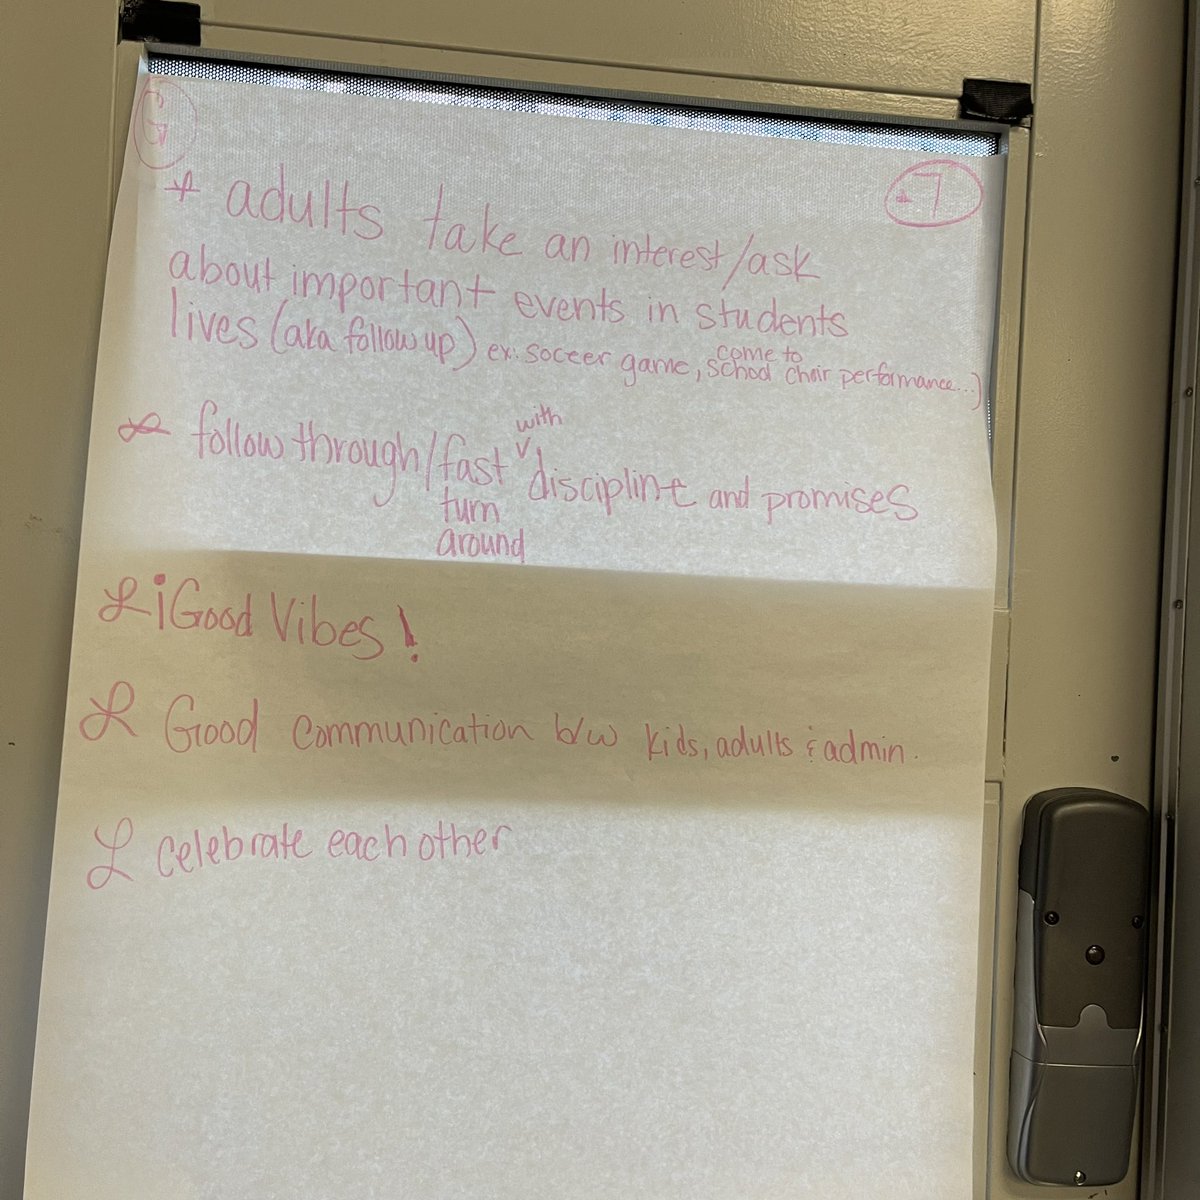 G
7
* adults take an interest/ask
about important events in students
lives (aka follow up) ex: soccer game, come to school choir performance...)
* follow through/fast turn around with discipline and promises
¡Good Vibes!
Good communication b/w kids, adults & admin.
celebrate each other